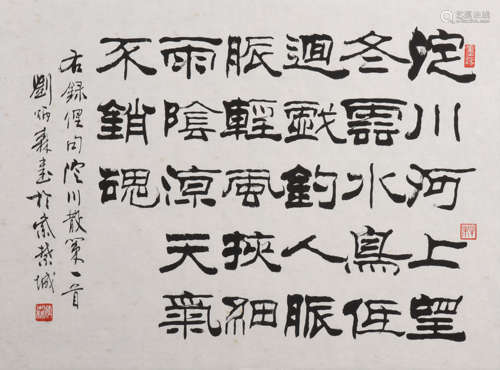 淀川河上望
冬雲水鳥低
迴戲釣人脈
脈輕風挾細
雨陰涼天氣
不銷魂
右錄俚句淀川散策一首
劉炳森書於紫禁城